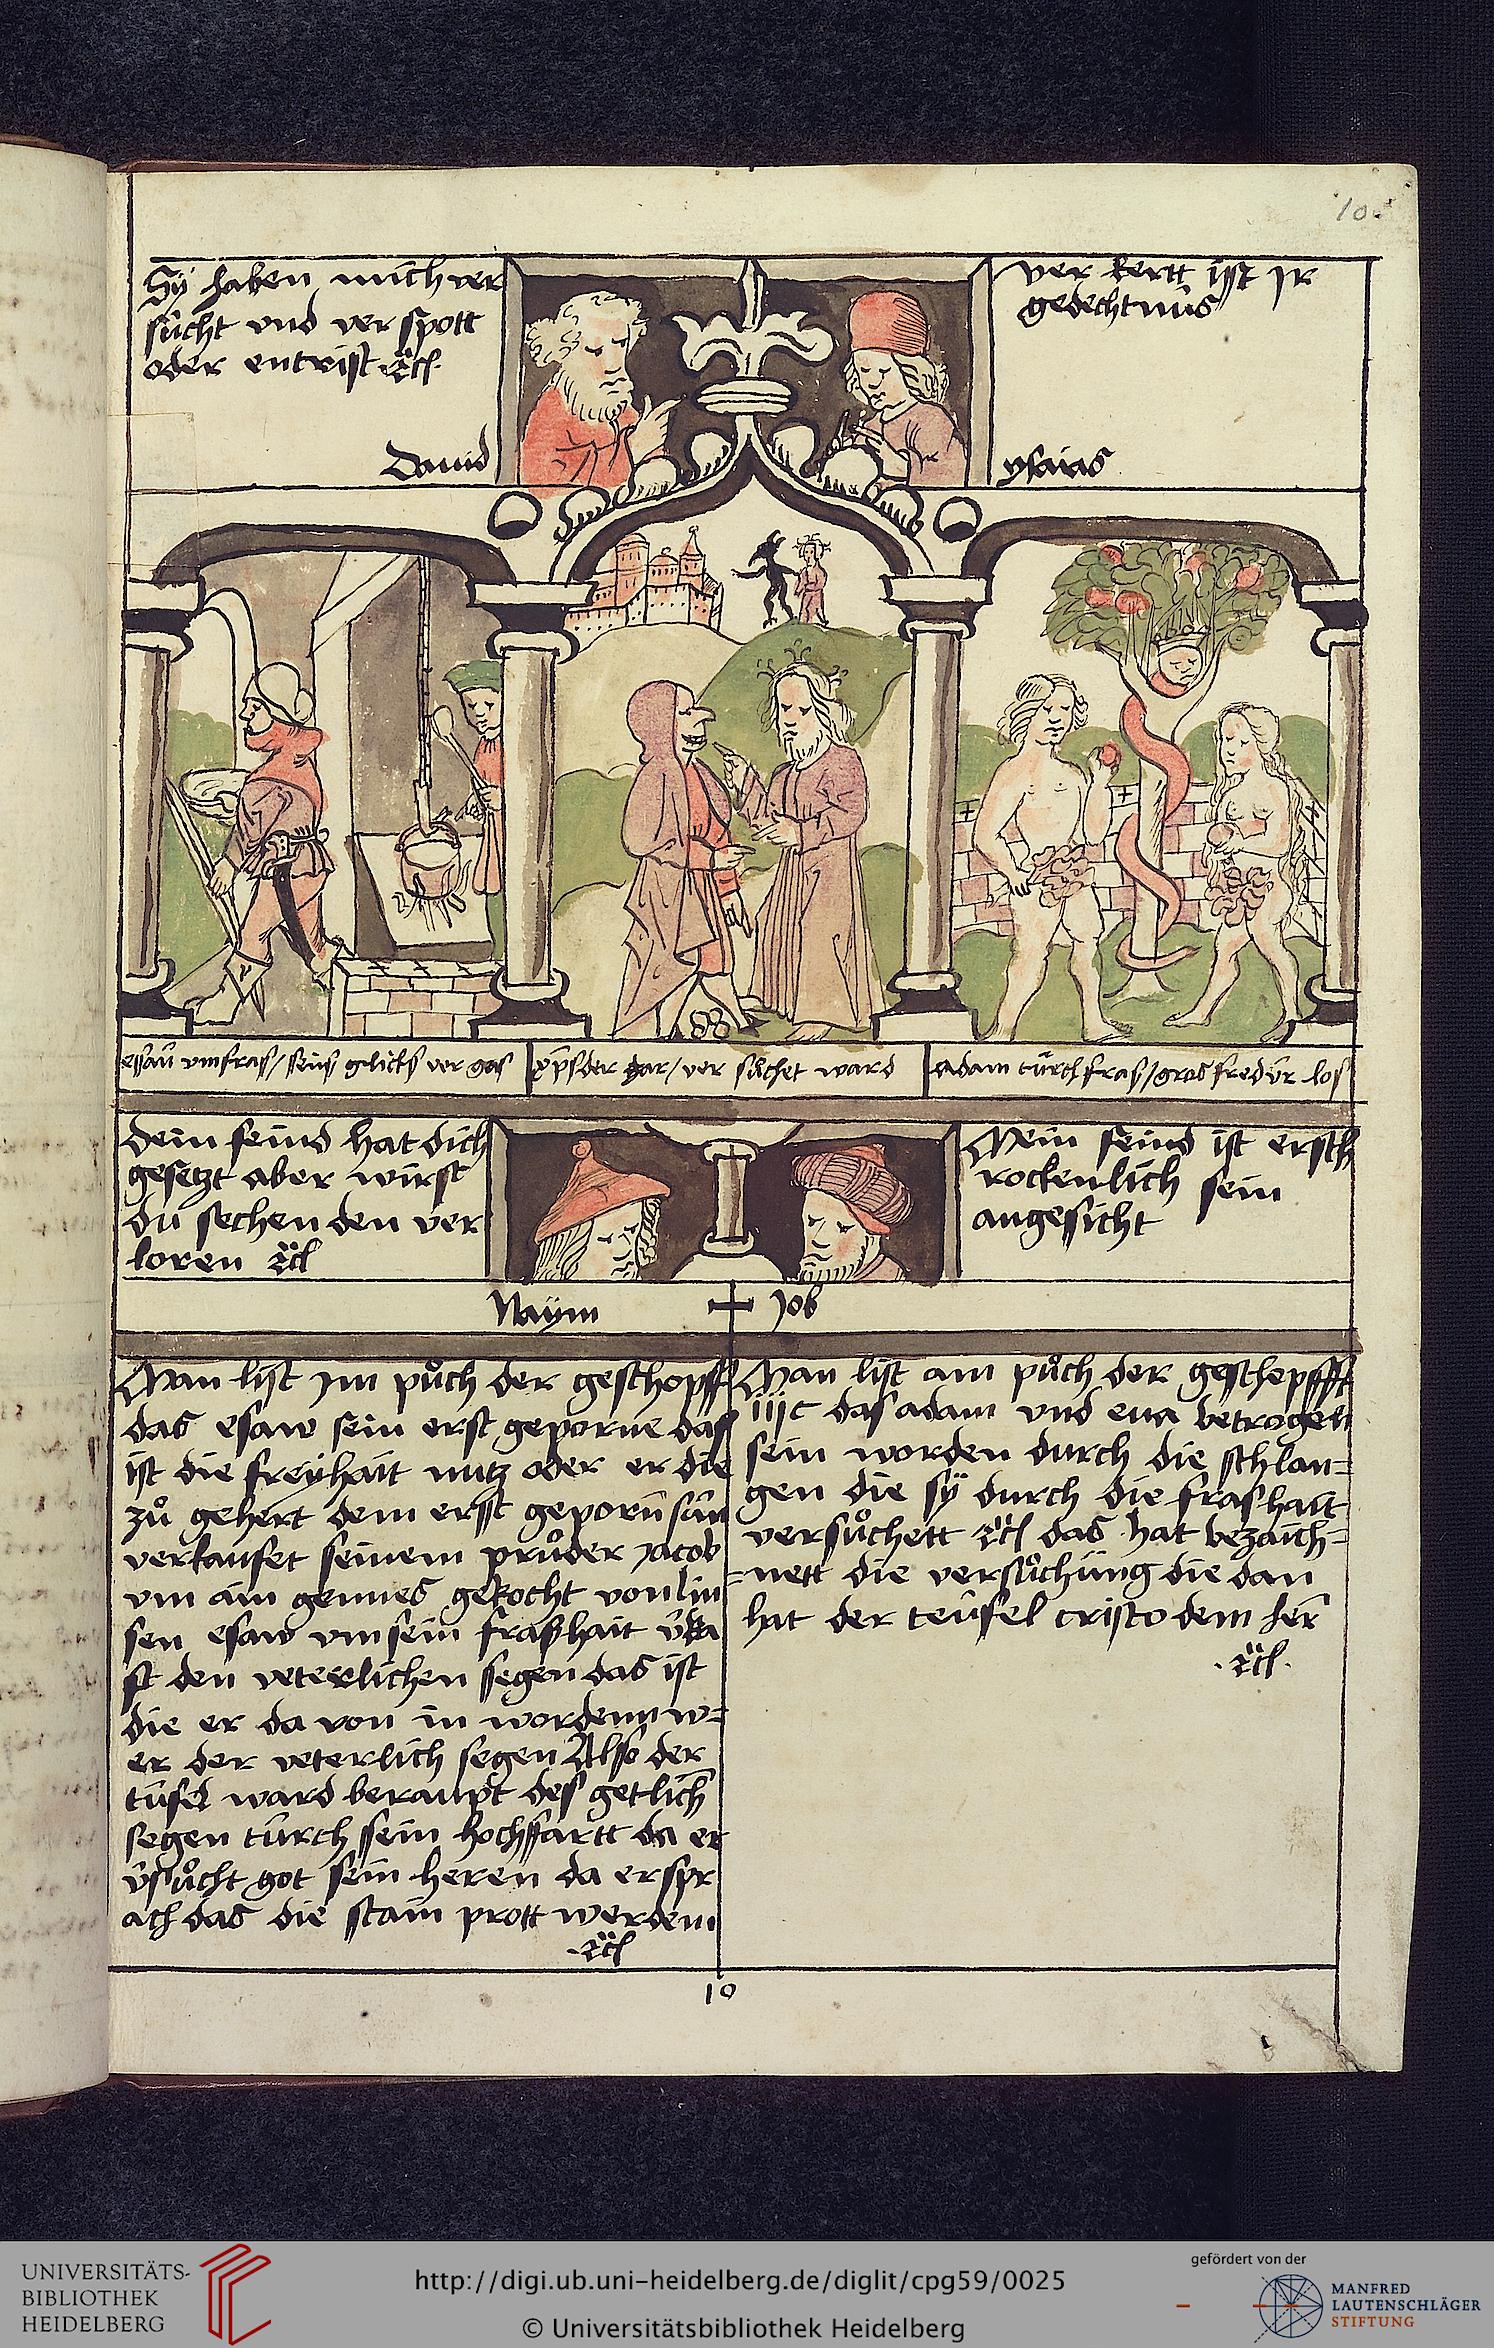 10
Sÿ haben mich ver
sücht vnd ver spott
oder entrist ꝛc̈.
Dauid
ver kertt ist ir
gedechtnüs
ysaias
esaü vm fras / seins gelücks ver gas
der gar / ver sůchet ward
Adam türch fras / gras fred v̄r los
dein feind hat dich
gesetzt aber wirst
dü sechen den ver
loren ꝛc̈
Mein feind ist ersch
rockenlich sein
angesicht
Naÿm
Job
Man list im půch der geschopff
das esaw sein erst geporne das
ist die freÿhait nütz oder er die
zů gehert dem erst geporn̄
verkaufet seinem průder Jacob
vm ain gemues gekocht von lin
sen esaw vm sein fraßhait
st den veterlichen segen das ist
die er da von in wordenn w=
er der veterlich segen Also der
tüfel ward beraupt des getlich̄
segen türch sein hochffartt da er
v̄sůcht got sein heren da er spr
ach das die stain prott werdem
ꝛc̈
Man list am půch der geschepfft
iijc das adam vnd eua betrogen
sein worden durch die schlan=
gen die sÿ durch die frashait
versůchett ꝛc̈ das hat bezaich=
=nett die versůchüng die dan
hat der teüfel cristo dem her̄
ꝛc̈.
10
UNIVERSITÄTS-
BIBLIOTHEK
HEIDELBERG
http://digi.ub.uni-heidelberg.de/diglit/cpg59/0025
© Universitätsbibliothek Heidelberg
gefördert von der
MANFRED
LAUTENSCHLÄGER
STIFTUNG